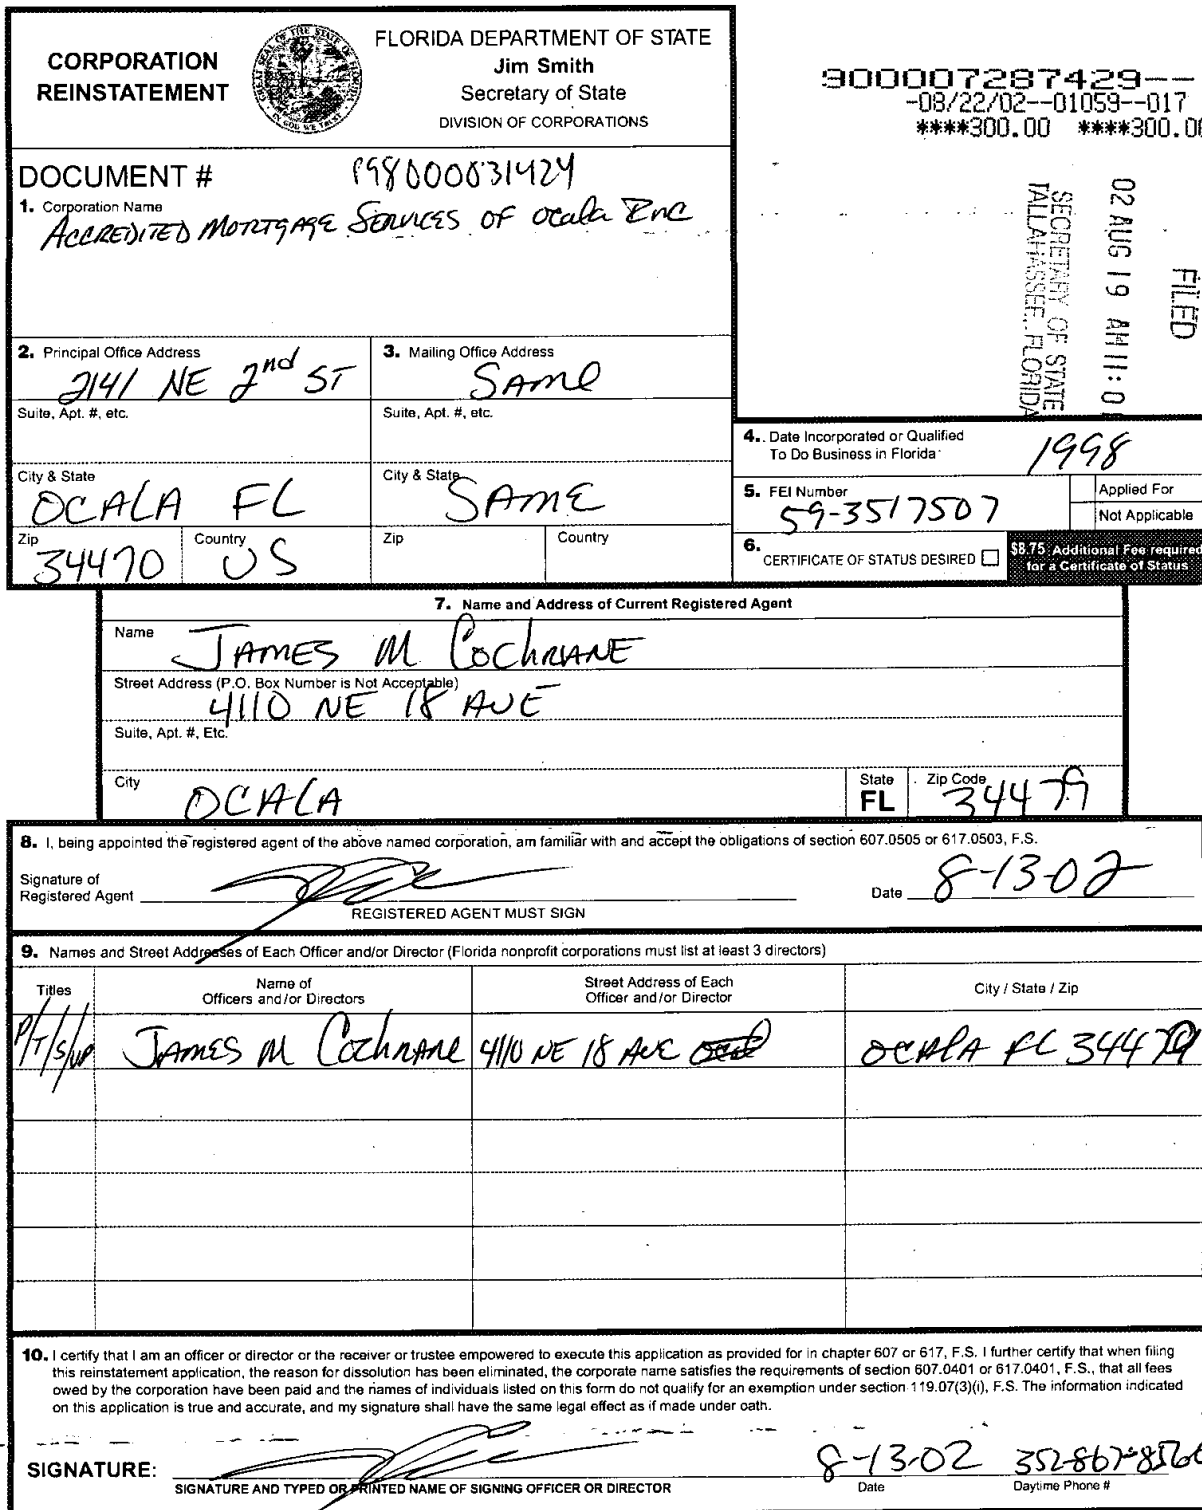 CORPORATION
REINSTATEMENT
FLORIDA DEPARTMENT OF STATE
Jim Smith
Secretary of State
DIVISION OF CORPORATIONS
900007287429--
-08/22/02--01059--017
****300.00 ****300.00
FILED
02 AUG 19 AM 11:0
SECRETARY OF STATE
TALLAHASSEE, FLORIDA
DOCUMENT # P98000031424
1. Corporation Name
ACCREDITED MORTGAGE SERVICES OF Ocala Inc
2. Principal Office Address
2141 NE 2nd ST
3. Mailing Office Address
SAME
Suite, Apt. #, etc.
Suite, Apt. #, etc.
City & State
OCALA FL
City & State
SAME
Zip
34470
Country
US
Zip
Country
4. Date Incorporated or Qualified
To Do Business in Florida
1998
5. FEI Number
59-3517507
Applied For
Not Applicable
6. CERTIFICATE OF STATUS DESIRED
$8.75 Additional Fee required
for a Certificate of Status
7. Name and Address of Current Registered Agent
Name
JAMES M COCHRANE
Street Address (P.O. Box Number is Not Acceptable)
4110 NE 18 AVE
Suite, Apt. #, Etc.
City
OCALA
State
FL
Zip Code
34479
8. I, being appointed the registered agent of the above named corporation, am familiar with and accept the obligations of section 607.0505 or 617.0503, F.S.
Signature of
Registered Agent
REGISTERED AGENT MUST SIGN
Date 8-13-02
9. Names and Street Addresses of Each Officer and/or Director (Florida nonprofit corporations must list at least 3 directors)
Titles
Name of
Officers and/or Directors
Street Address of Each
Officer and/or Director
City / State / Zip
P/T/S/VP JAMES M Cochrane 4110 NE 18 AVE OCALA FL 34479
10. I certify that I am an officer or director or the receiver or trustee empowered to execute this application as provided for in chapter 607 or 617, F.S. I further certify that when filing
this reinstatement application, the reason for dissolution has been eliminated, the corporate name satisfies the requirements of section 607.0401 or 617.0401, F.S., that all fees
owed by the corporation have been paid and the names of individuals listed on this form do not qualify for an exemption under section 119.07(3)(i), F.S. The information indicated
on this application is true and accurate, and my signature shall have the same legal effect as if made under oath.
SIGNATURE:
SIGNATURE AND TYPED OR PRINTED NAME OF SIGNING OFFICER OR DIRECTOR
8-13-02
Date
352-867-8566
Daytime Phone #